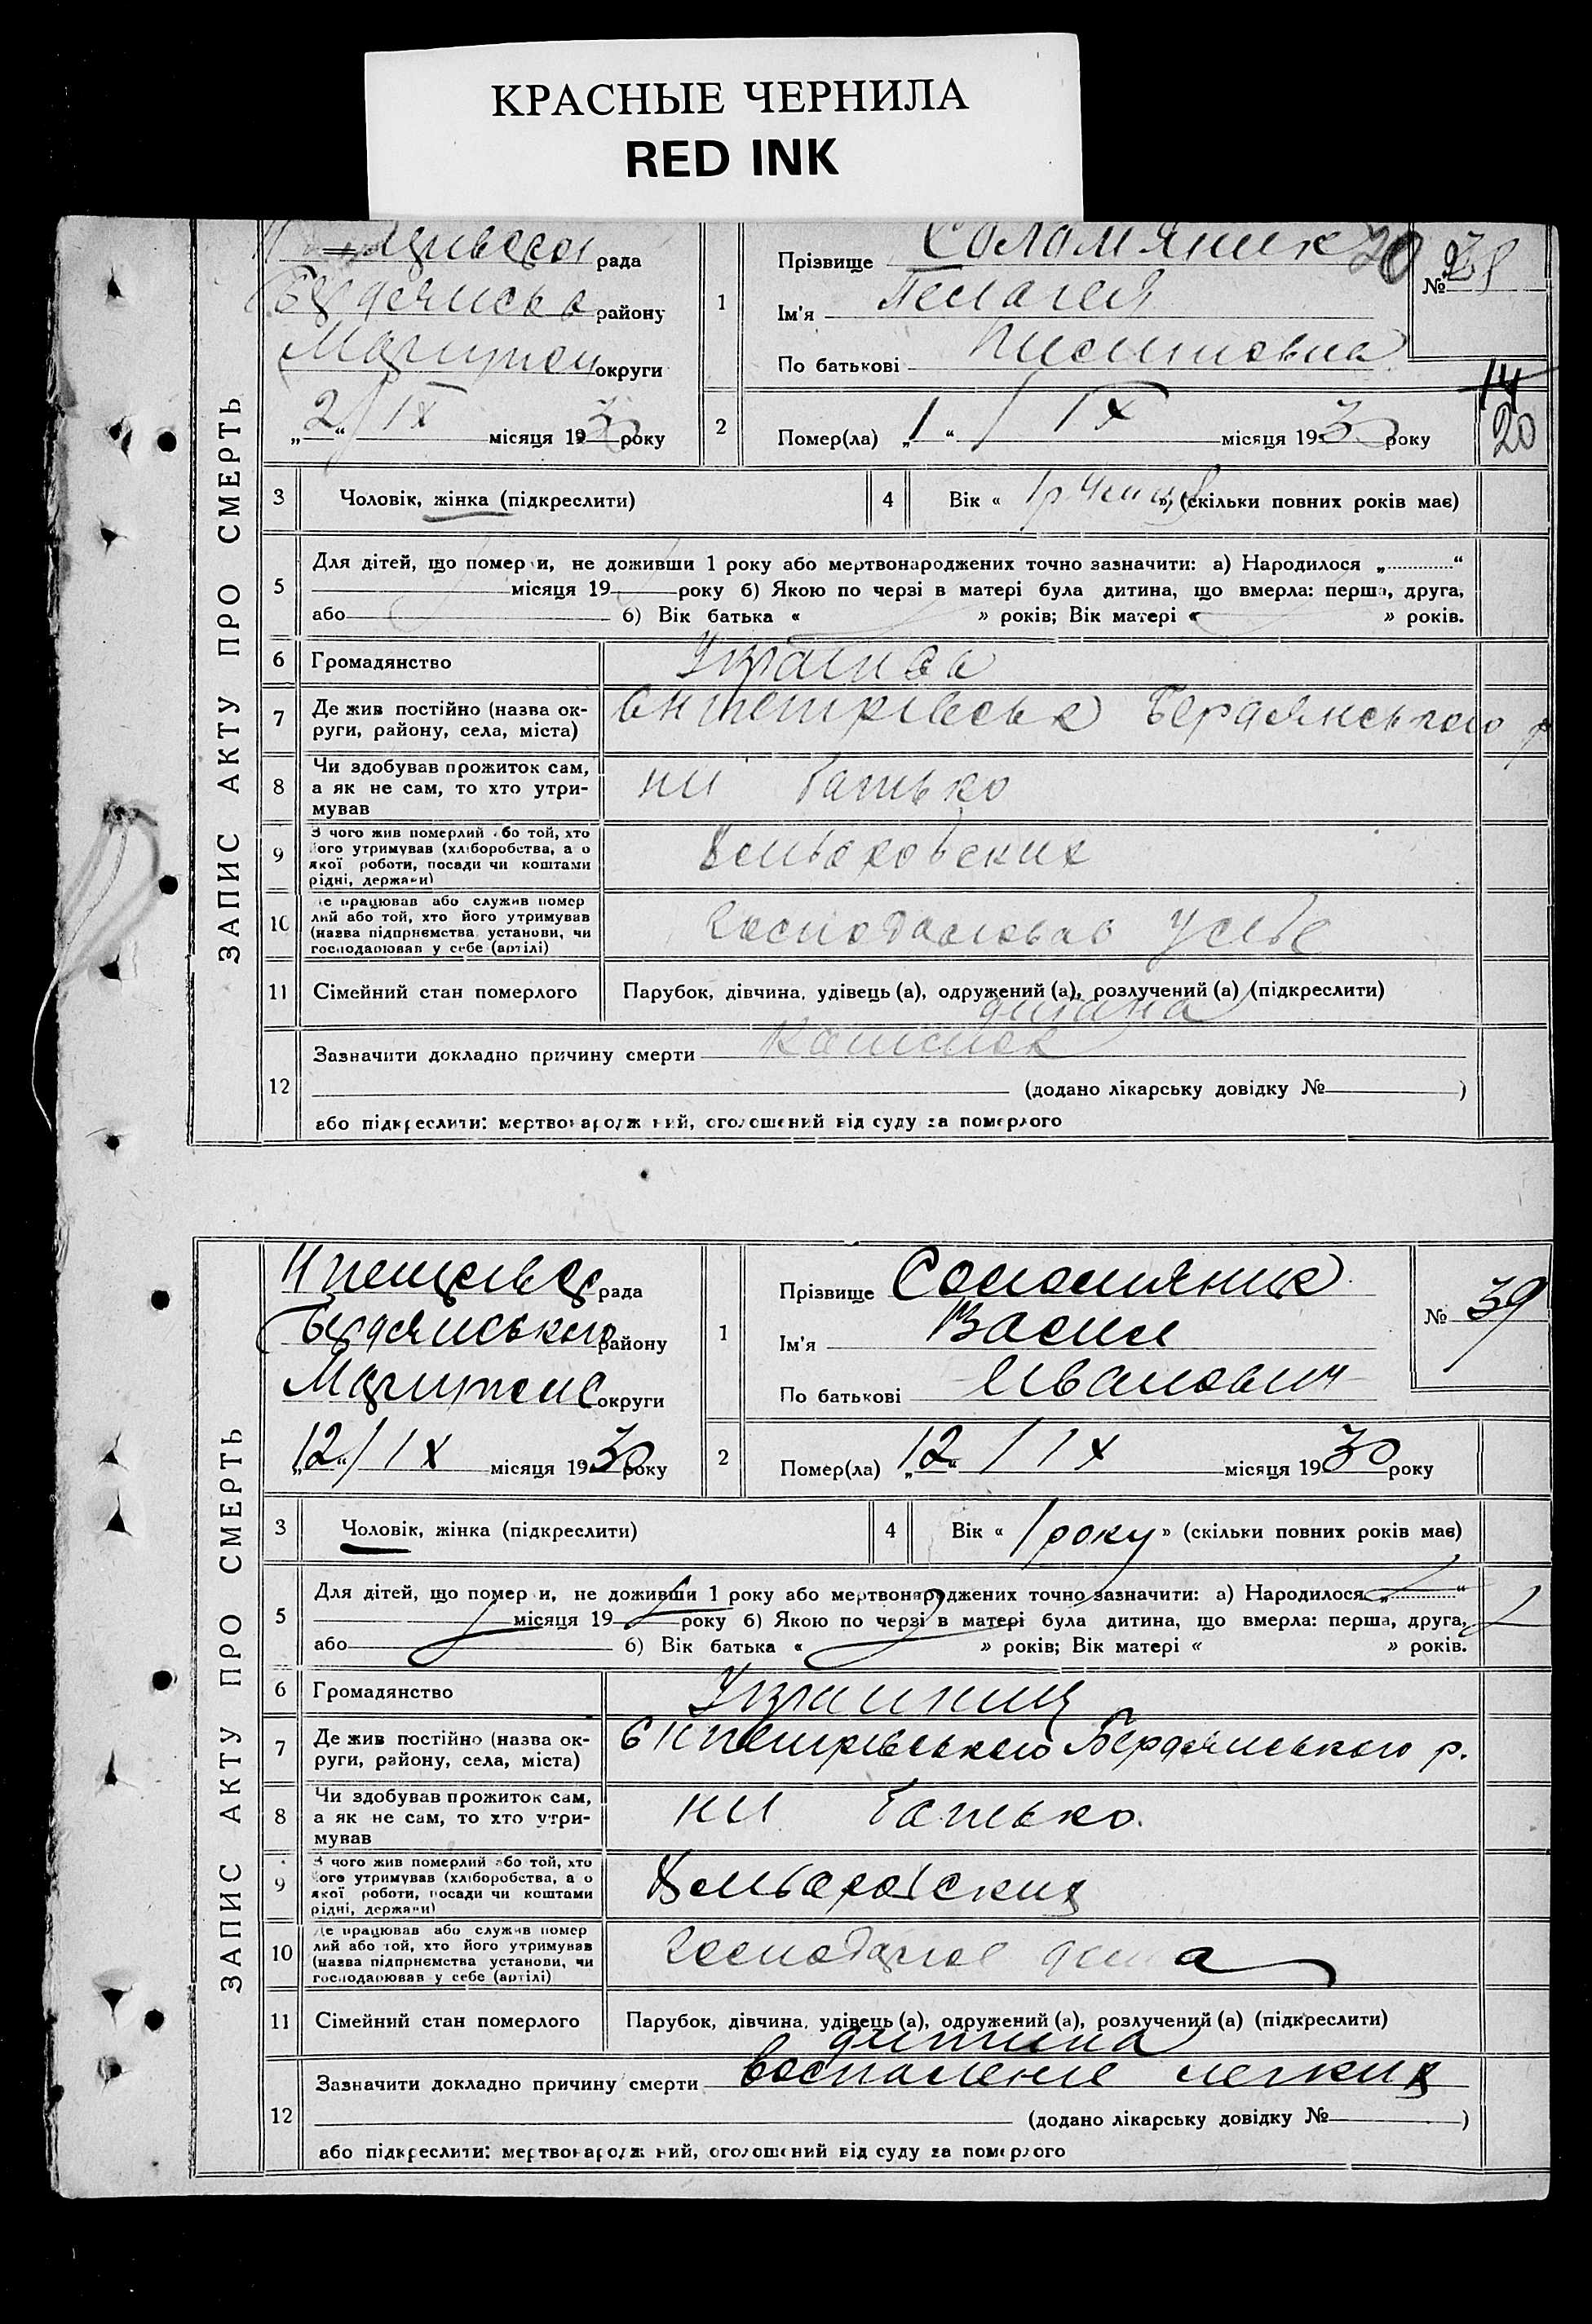 КРАСНЫЕ ЧЕРНИЛА
RED INK
ЗАПИС АКТУ ПРО СМЕРТЬ
рада
району
округи
„2“ / IX місяця 1930 року
1
Прізвище Соломяник
Ім'я Пелагея
По батькові
20
№ 38
2
Помер(ла) „1“ / IX місяця 1930 року
14
20
3
Чоловік, жінка (підкреслити)
4
Вік « 1 р. » (скільки повних років має)
5
Для дітей, що померли, не доживши 1 року або мертвонароджених точно зазначити: а) Народилося „ “
місяця 19 року б) Якою по черзі в матері була дитина, що вмерла: перша, друга,
або б) Вік батька « » років; Вік матері « » років.
6
Громадянство
7
Де жив постійно (назва ок-
руги, району, села, міста)
Бердянського р
8
Чи здобував прожиток сам,
а як не сам, то хто утри-
мував
ни батько
9
З чого жив померлий або той, хто
його утримував (хліборобства, або
якої роботи, посади чи коштами
рідні, держави)
10
Де працював або служив помер
лий або той, хто його утримував
(назва підприємства, установи, чи
господарював у себе (артілі)
у себе
11
Сімейний стан померлого
Парубок, дівчина, удівець (а), одружений (а), розлучений (а) (підкреслити)
дитина
12
Зазначити докладно причину смерти
(додано лікарську довідку № )
або підкреслити: мертвонароджений, оголошений від суду за померлого
ЗАПИС АКТУ ПРО СМЕРТЬ
рада
Бердянського району
округи
„12“ / IX місяця 1930 року
1
Прізвище Соломяник
Ім'я Васил
По батькові Иванович
№ 39
2
Помер(ла) „12“ / IX місяця 1930 року
3
Чоловік, жінка (підкреслити)
4
Вік « 1 року » (скільки повних років має)
5
Для дітей, що померли, не доживши 1 року або мертвонароджених точно зазначити: а) Народилося „ “
місяця 19 року б) Якою по черзі в матері була дитина, що вмерла: перша, друга,
або б) Вік батька « » років; Вік матері « » років.
6
Громадянство
7
Де жив постійно (назва ок-
руги, району, села, міста)
Бердянського р.
8
Чи здобував прожиток сам,
а як не сам, то хто утри-
мував
ни батько.
9
З чого жив померлий або той, хто
його утримував (хліборобства, або
якої роботи, посади чи коштами
рідні, держави)
10
Де працював або служив помер
лий або той, хто його утримував
(назва підприємства, установи, чи
господарював у себе (артілі)
11
Сімейний стан померлого
Парубок, дівчина, удівець (а), одружений (а), розлучений (а) (підкреслити)
дитина
12
Зазначити докладно причину смерти воспаление легких
(додано лікарську довідку № )
або підкреслити: мертвонароджений, оголошений від суду за померлого